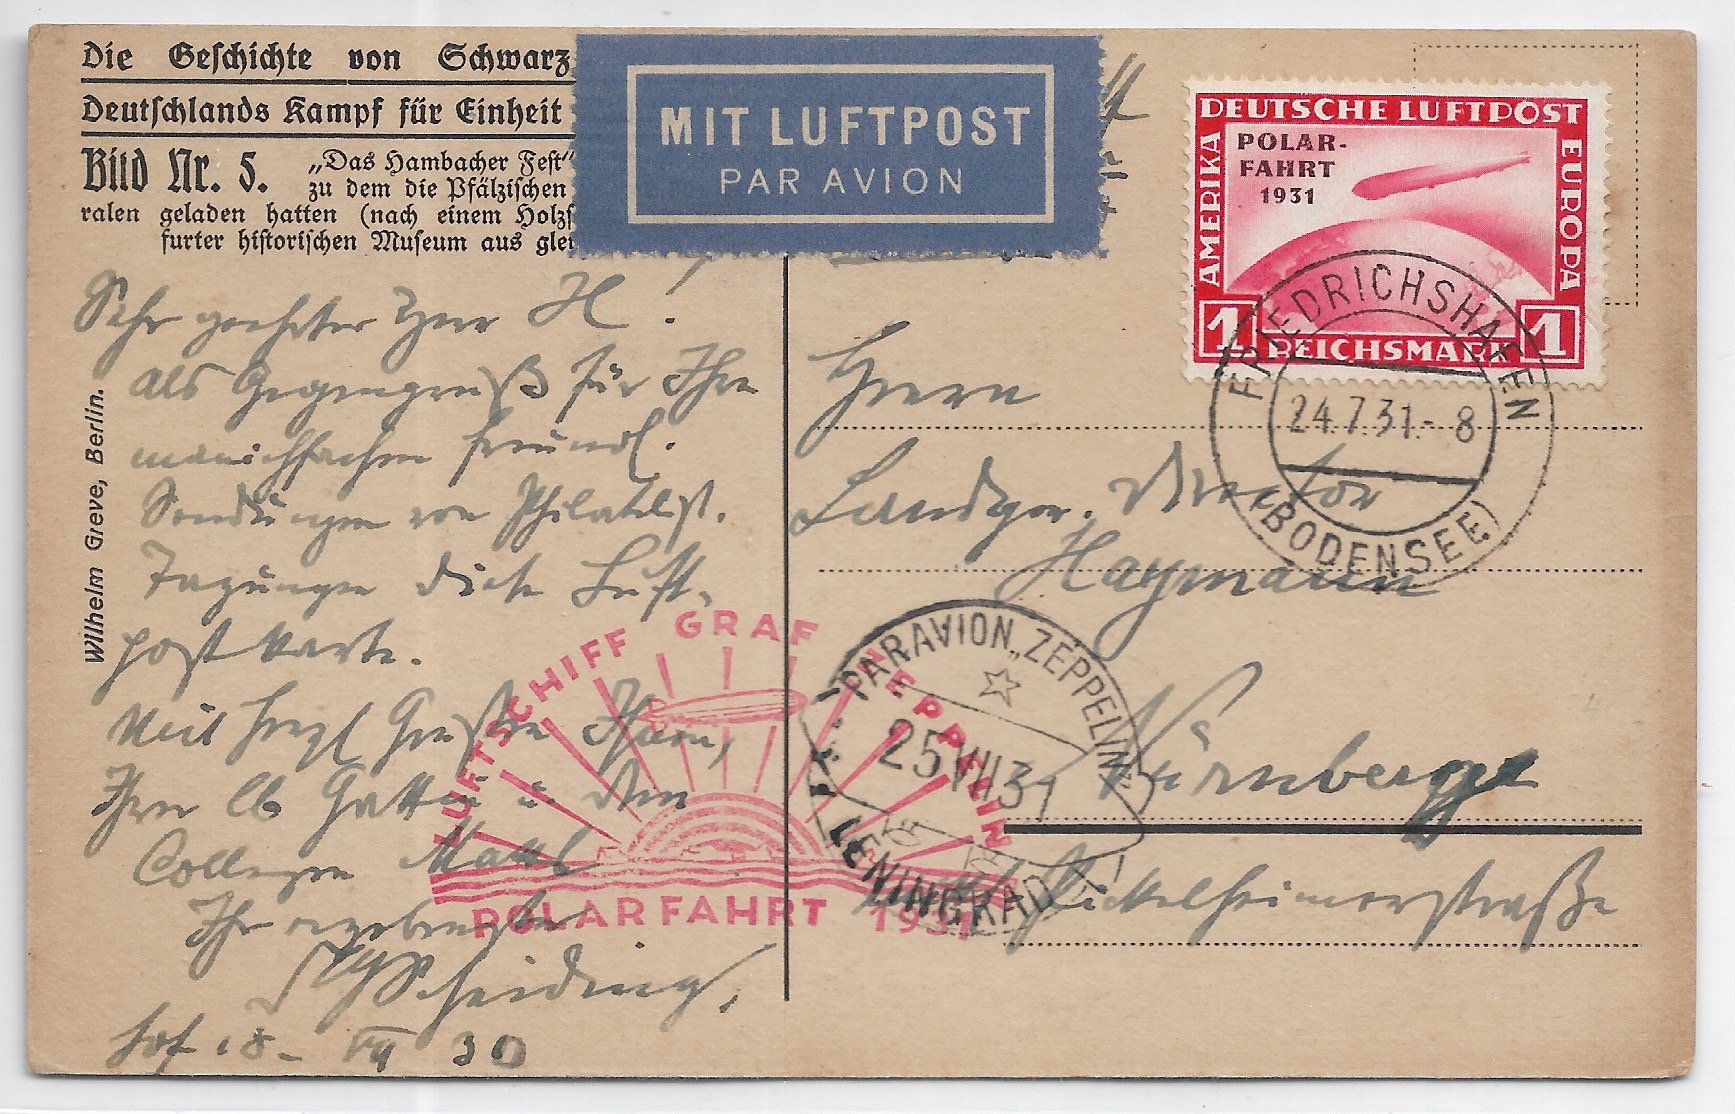 Die Geschichte von Schwarz
Deutschlands Kampf für Einheit
Bild Nr. 5. „Das Hambacher Fest“
zu dem die Pfälzischen
ralen geladen hatten (nach einem Holzs
furter historischen Museum aus glei
MIT LUFTPOST
PAR AVION
DEUTSCHE LUFTPOST
AMERIKA
EUROPA
POLAR-
FAHRT
1931
1 REICHSMARK 1
FRIEDRICHSHAFEN
24.7.31.-8
(BODENSEE)
Wilhelm Greve, Berlin.
Sehr geehrter Herr H!
als Gegengruß für Ihre
manichfachen freundl.
Sendungen von Philatelist.
Tagungen diese Luft-
postkarte.
Mit herzl Grüßen Ihnen,
Ihrer lb Gattin u. den
Collegen
Ihr ergebenster
Scheiding,
Hof 18. VII 30
Herrn
Landger. Director
Haymann
Nürnberg
Pickelheimerstraße
LUFTSCHIFF GRAF ZEPPELIN
POLARFAHRT 1931
PAR AVION „ZEPPELIN“
25 VII 31
LENINGRAD